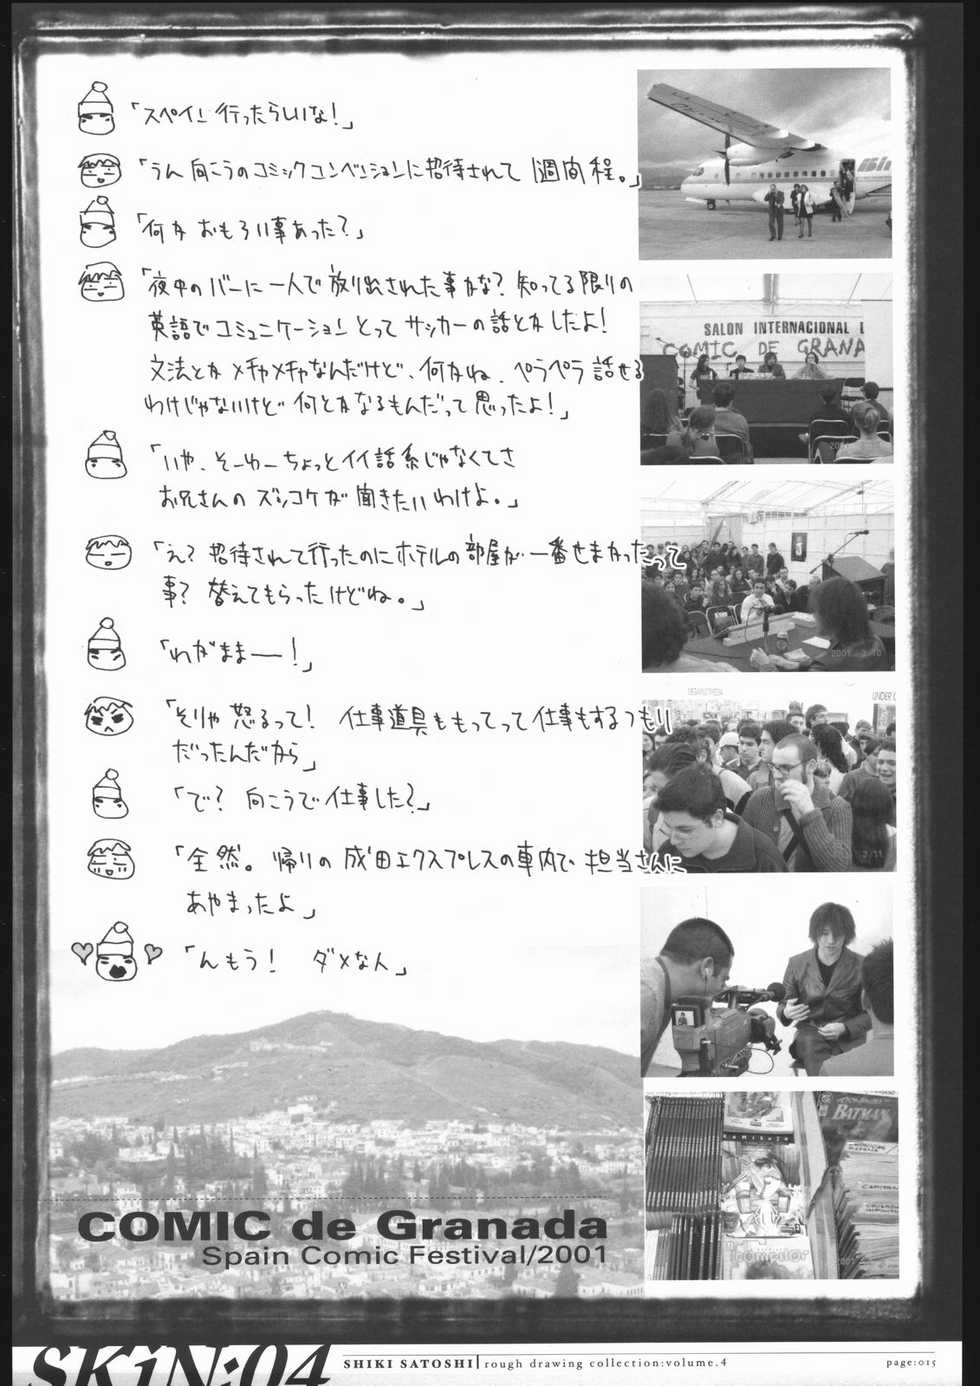 「スペイン行ったらしいな！」
「うん 向こうのコミックコンベンションに招待されて 1週間程。」
「何か おもろい事あった？」
「夜中のバーに一人で放り出された事かな？ 知ってる限りの
英語でコミュニケーションとって サッカーの話とかしたよ！
文法とか メチャメチャなんだけど、何かね、ペラペラ話せる
わけじゃないけど 何とかなるもんだって思ったよ！」
「いや、そーゆーちょっとイイ話系じゃなくてさ
お兄さんの ズンコケが 聞きたいわけよ。」
「え？ 招待されて行ったのにホテルの部屋が一番せまかったって
事？ 替えてもらったけどね。」
「わがままー！」
「そりゃ 怒るって！ 仕事道具ももってって仕事もするつもり
だったんだから」
「で？ 向こうで仕事した？」
「全然。帰りの 成田エクスプレスの車内で 担当さんに
あやまったよ」
「んもう！ ダメな人」
SALON INTERNACIONAL D
COMIC DE GRANA
UNDER
BATMAN
COMIC de Granada
Spain Comic Festival/2001
SKiN:04
SHIKI SATOSHI rough drawing collection:volume.4
page:015